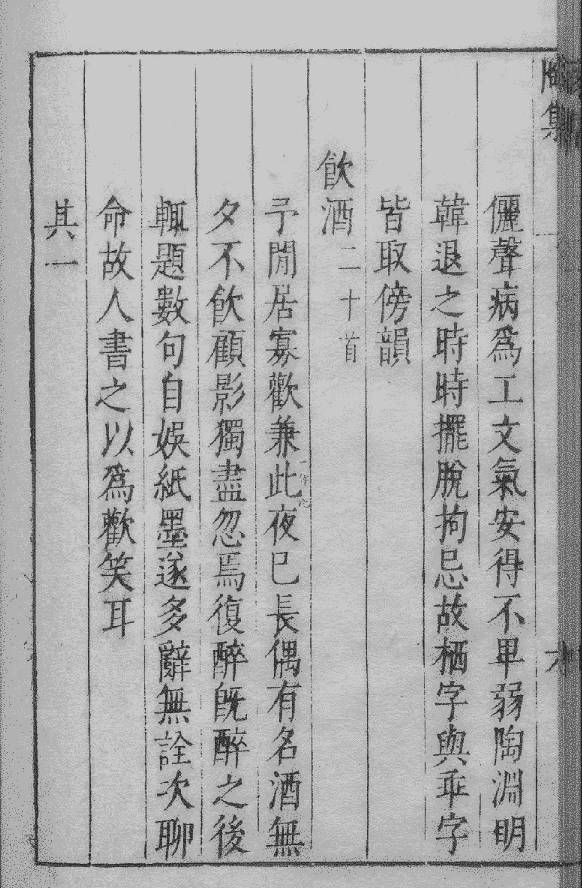 陶集
儷聲病爲工文氣安得不卑弱陶淵明
韓退之時時擺脫拘忌故栖字與乖字
皆取傍韻
飲酒二十首
予閒居寡歡兼此夜已長偶有名酒無
夕不飲顧影獨盡忽焉復醉旣醉之後
輒題數句自娛紙墨遂多辭無詮次聊
命故人書之以爲歡笑耳
其一